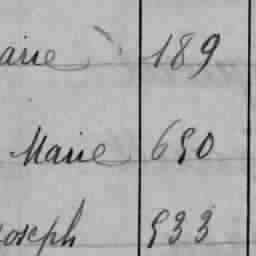 arie 189
Marie 650
oseph 533